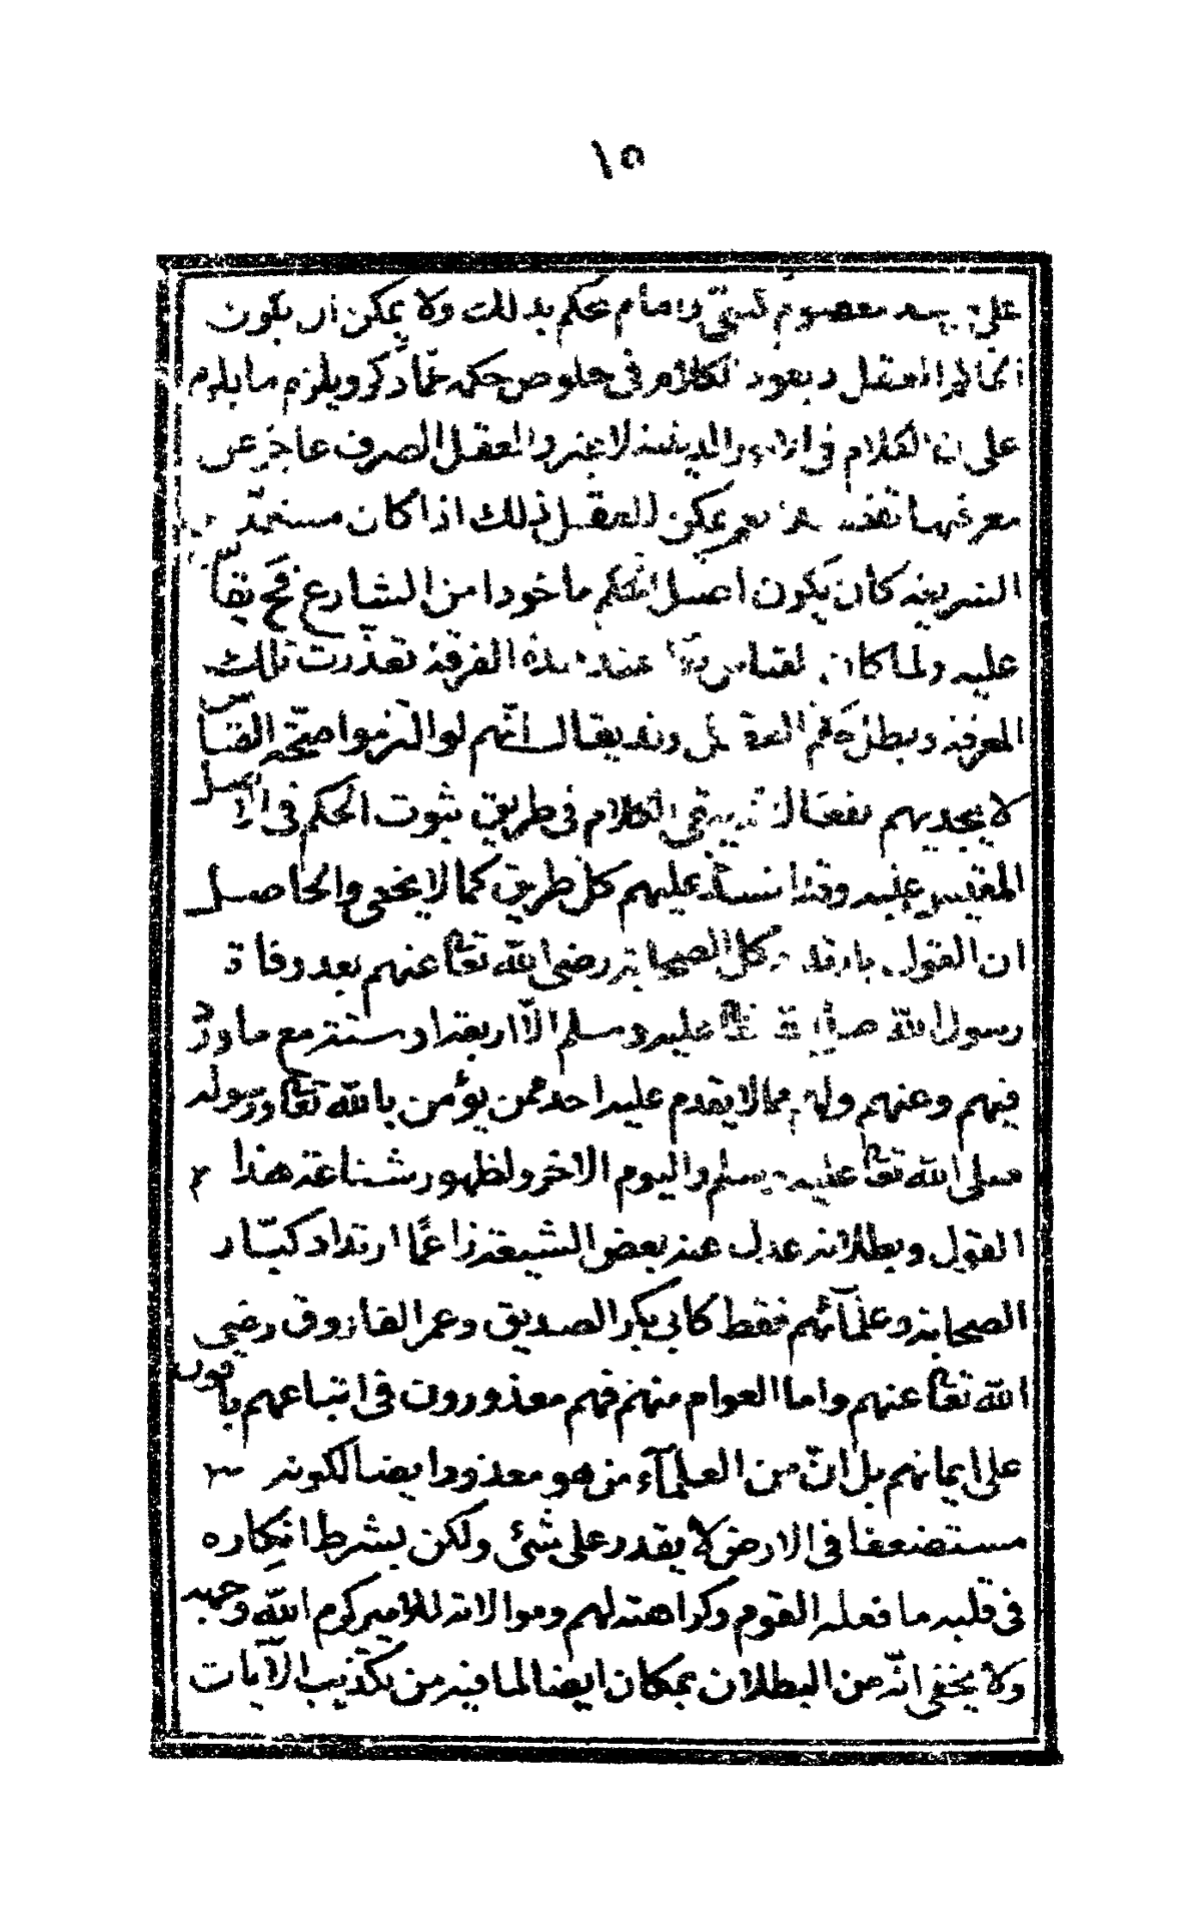 ١٥
على معصوم كنبي وامام يحكم بذلك ولا يمكن ان يكون
الحاكم العقل ويعود الكلام في خلوص حكمه عما ذكر ويلزم ما يلزم
على ان الكلام في الامور الدينية لا غير والعقل الصرف عاجز عن
معرفتها نعم يمكن للعقل ذلك اذا كان مستمدّا من
الشريعة كان يكون اصل الحكم ماخوذا من الشارع فح يقاس
عليه ولما كان القياس عند هذه الفرقة تعذّرت تلك
المعرفة وبطل حكم العقل وقد يقال انّهم لو التزموا صحّة القياس
لا يجديهم نفعا اذ يبقى الكلام في طريق ثبوت الحكم في الاصل
المقيس عليه وقد انسدّ عليهم كل طريق كما لا يخفى والحاصل
ان القول بارتداد كل الصحابة رضي الله تعا عنهم بعد وفاة
رسول الله صلى الله تعا عليه وسلم الّا اربعة او ستة مع ما ورد
فيهم وعنهم ولهم مما لا يقدم عليه احد ممن يؤمن بالله تعا ورسوله
صلى الله تعا عليه وسلم واليوم الاخر ولظهور شناعة هذا
القول وبطلانه عدل عنه بعض الشيعة زاعمًا ارتداد كبّار
الصحابة وعلمآئهم فقط كابي بكر الصديق وعمر الفاروق رضي
الله تعا عنهم واما العوام منهم فهم معذورون في اتباعهم باقون
على ايمانهم بل انّ من العلمآء من هو معذور ايضا لكونه
مستضعفا في الارض لا يقدر على شئ ولكن بشرط انكاره
في قلبه ما فعله القوم وكراهته لهم وموالاته للامير كرم الله وجهه
ولا يخفى انّه من البطلان بمكان ايضا لما فيه من تكذيب الآيات